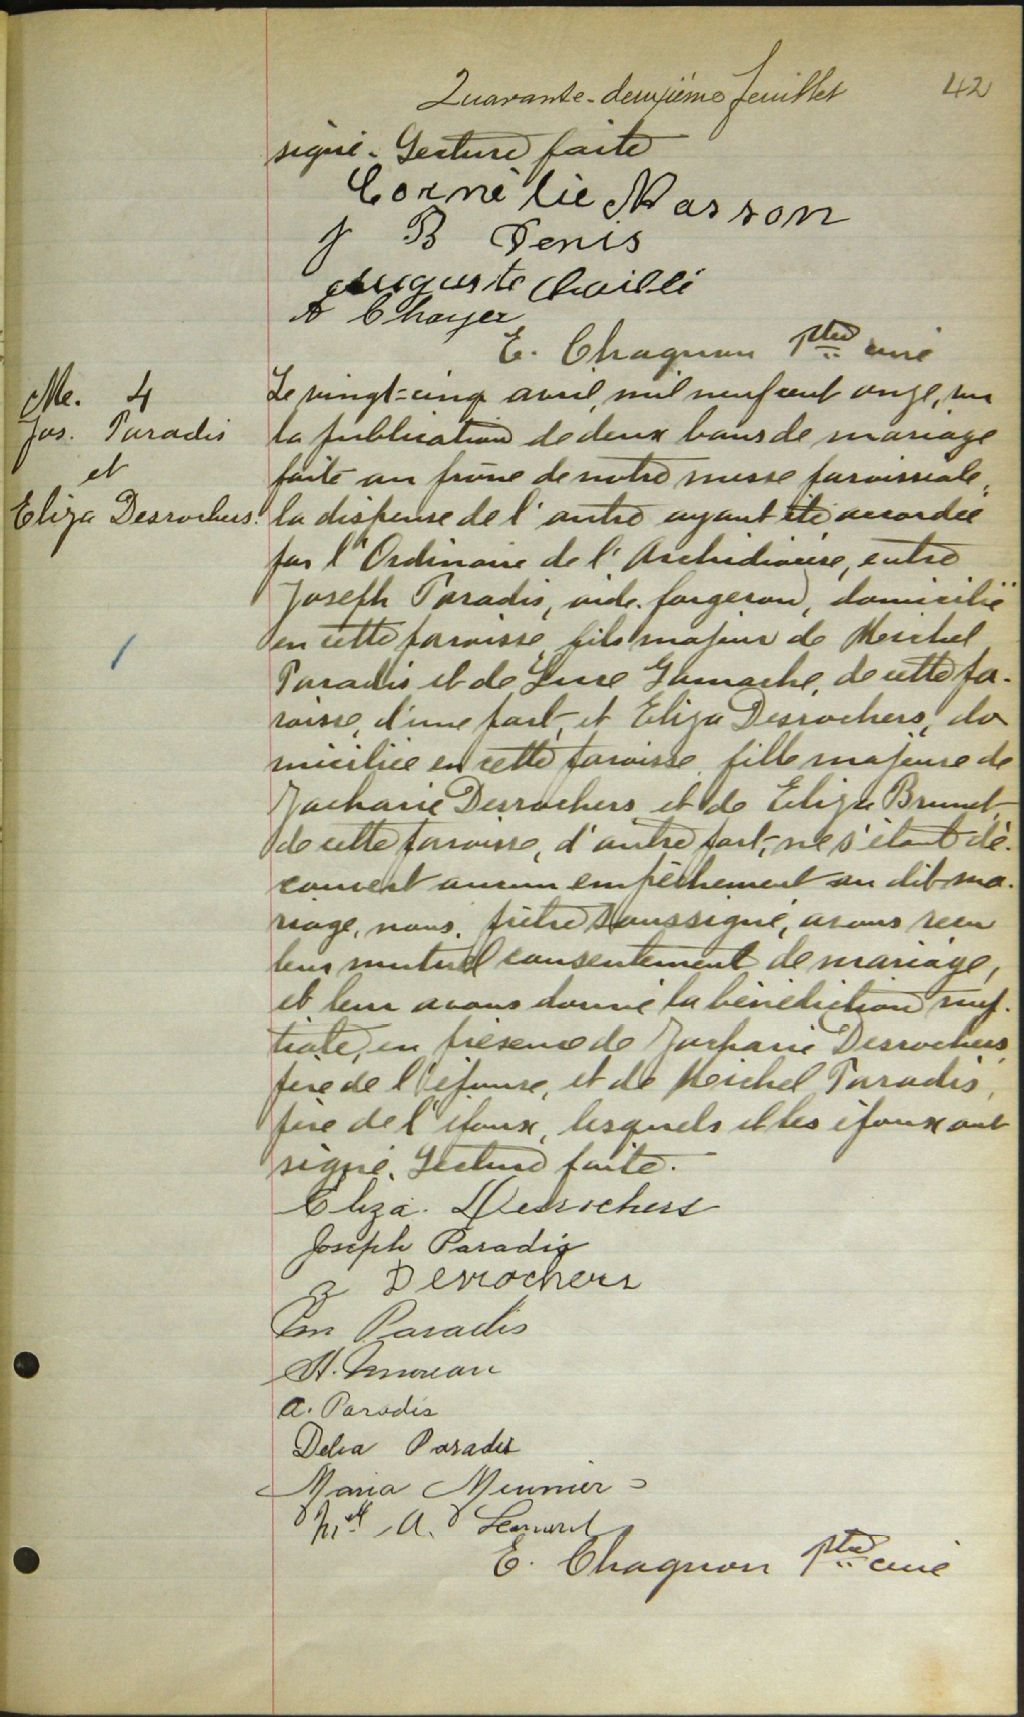 Quarante-deuxième feuillet
42
signé. Lecture faite
Cornélie Masson
J B Denis
Auguste Chaillé
A Choyer
E. Chagnon Ptre curé
Me. 4
Jos. Paradis
et
Eliza Desrochers.
Le vingt-cinq avril, mil neuf cent onze, vu
la publication de deux bans de mariage
faite au prône de notre messe paroissiale,
la dispense de l'autre ayant été accordée
par l'Ordinaire de l'Archidiocèse, entre
Joseph Paradis, aide-forgeron, domicilié
en cette paroisse, fils majeur de Meichel
Paradis et de Luce Gamache, de cette pa-
roisse, d'une part, et Eliza Desrochers, do
miciliée en cette paroisse, fille majeure de
Zacharie Desrochers et de Eliza Brunet,
de cette paroisse, d'autre part, ne s'étant dé-
couvert aucun empêchement au dit ma-
riage, nous, prêtre soussigné, avons reçu
leur mutuel consentement de mariage,
et leur avons donné la bénédiction nup-
tiale, en présence de Zacharie Desrochers,
père de l'épouse, et de Meichel Paradis,
père de l'époux, lesquels et les époux ont
signé. Lecture faite.
Eliza. Desrochers
Joseph Paradis
Z Desrochers
Paradis
A. Paradis
Delia Paradis
Maria Meunier
A. Leonard
E. Chagnon Ptre curé